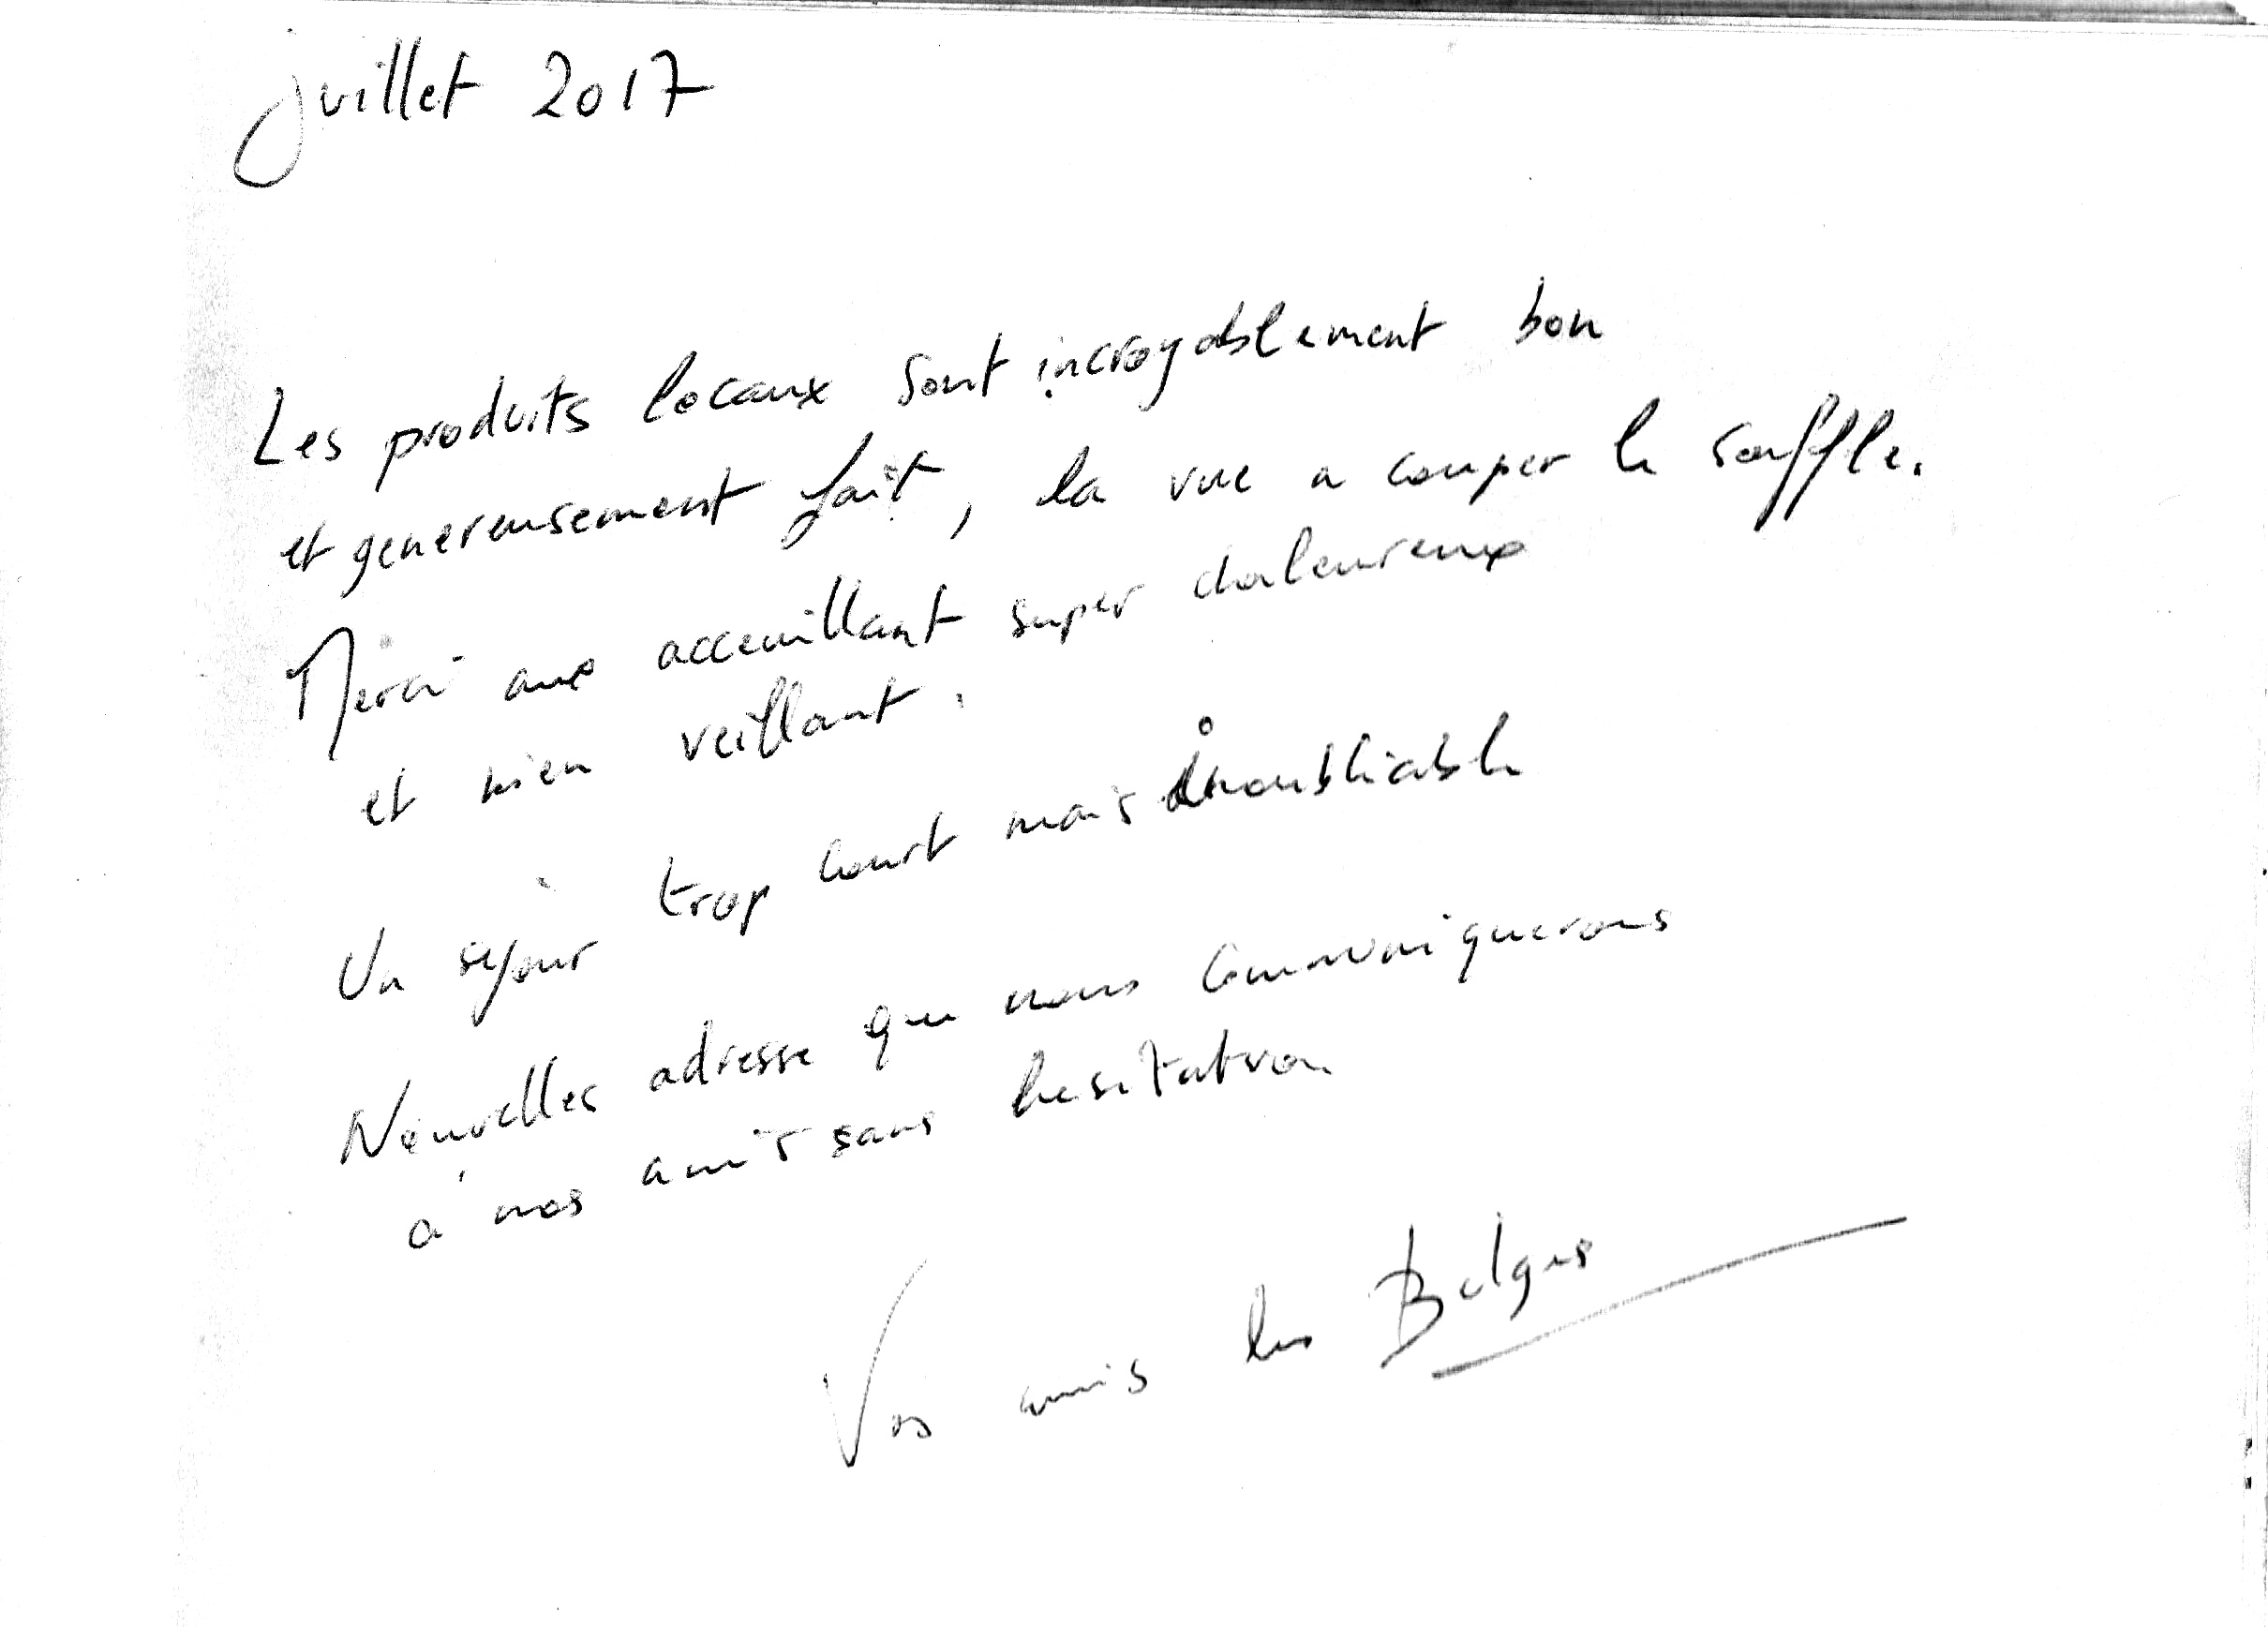 juillet 2017
Les produits locaux sont incroyablement bon
et genereusement fait, la vue a couper le souffle.
Merci aux acceuillant super chaleureux
et bien veillant.
Un séjour trop court mais inoubliable
Nouvelles adresse que nous communiquerons
à nos amis sans hesitation
Vos amis les Belges